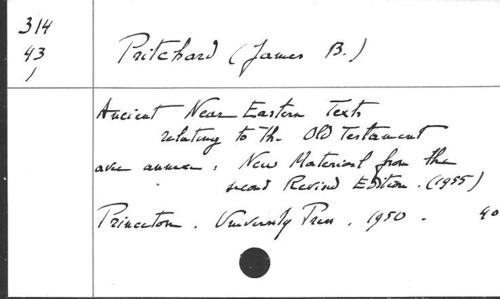 314
43
1
Pritchard (James B.)
Ancient Near Eastern Texts
relating to the Old Testament
avec annexe : New Material from the
second Revised Edition. (1955)
Princeton. University Press. 1950.
40